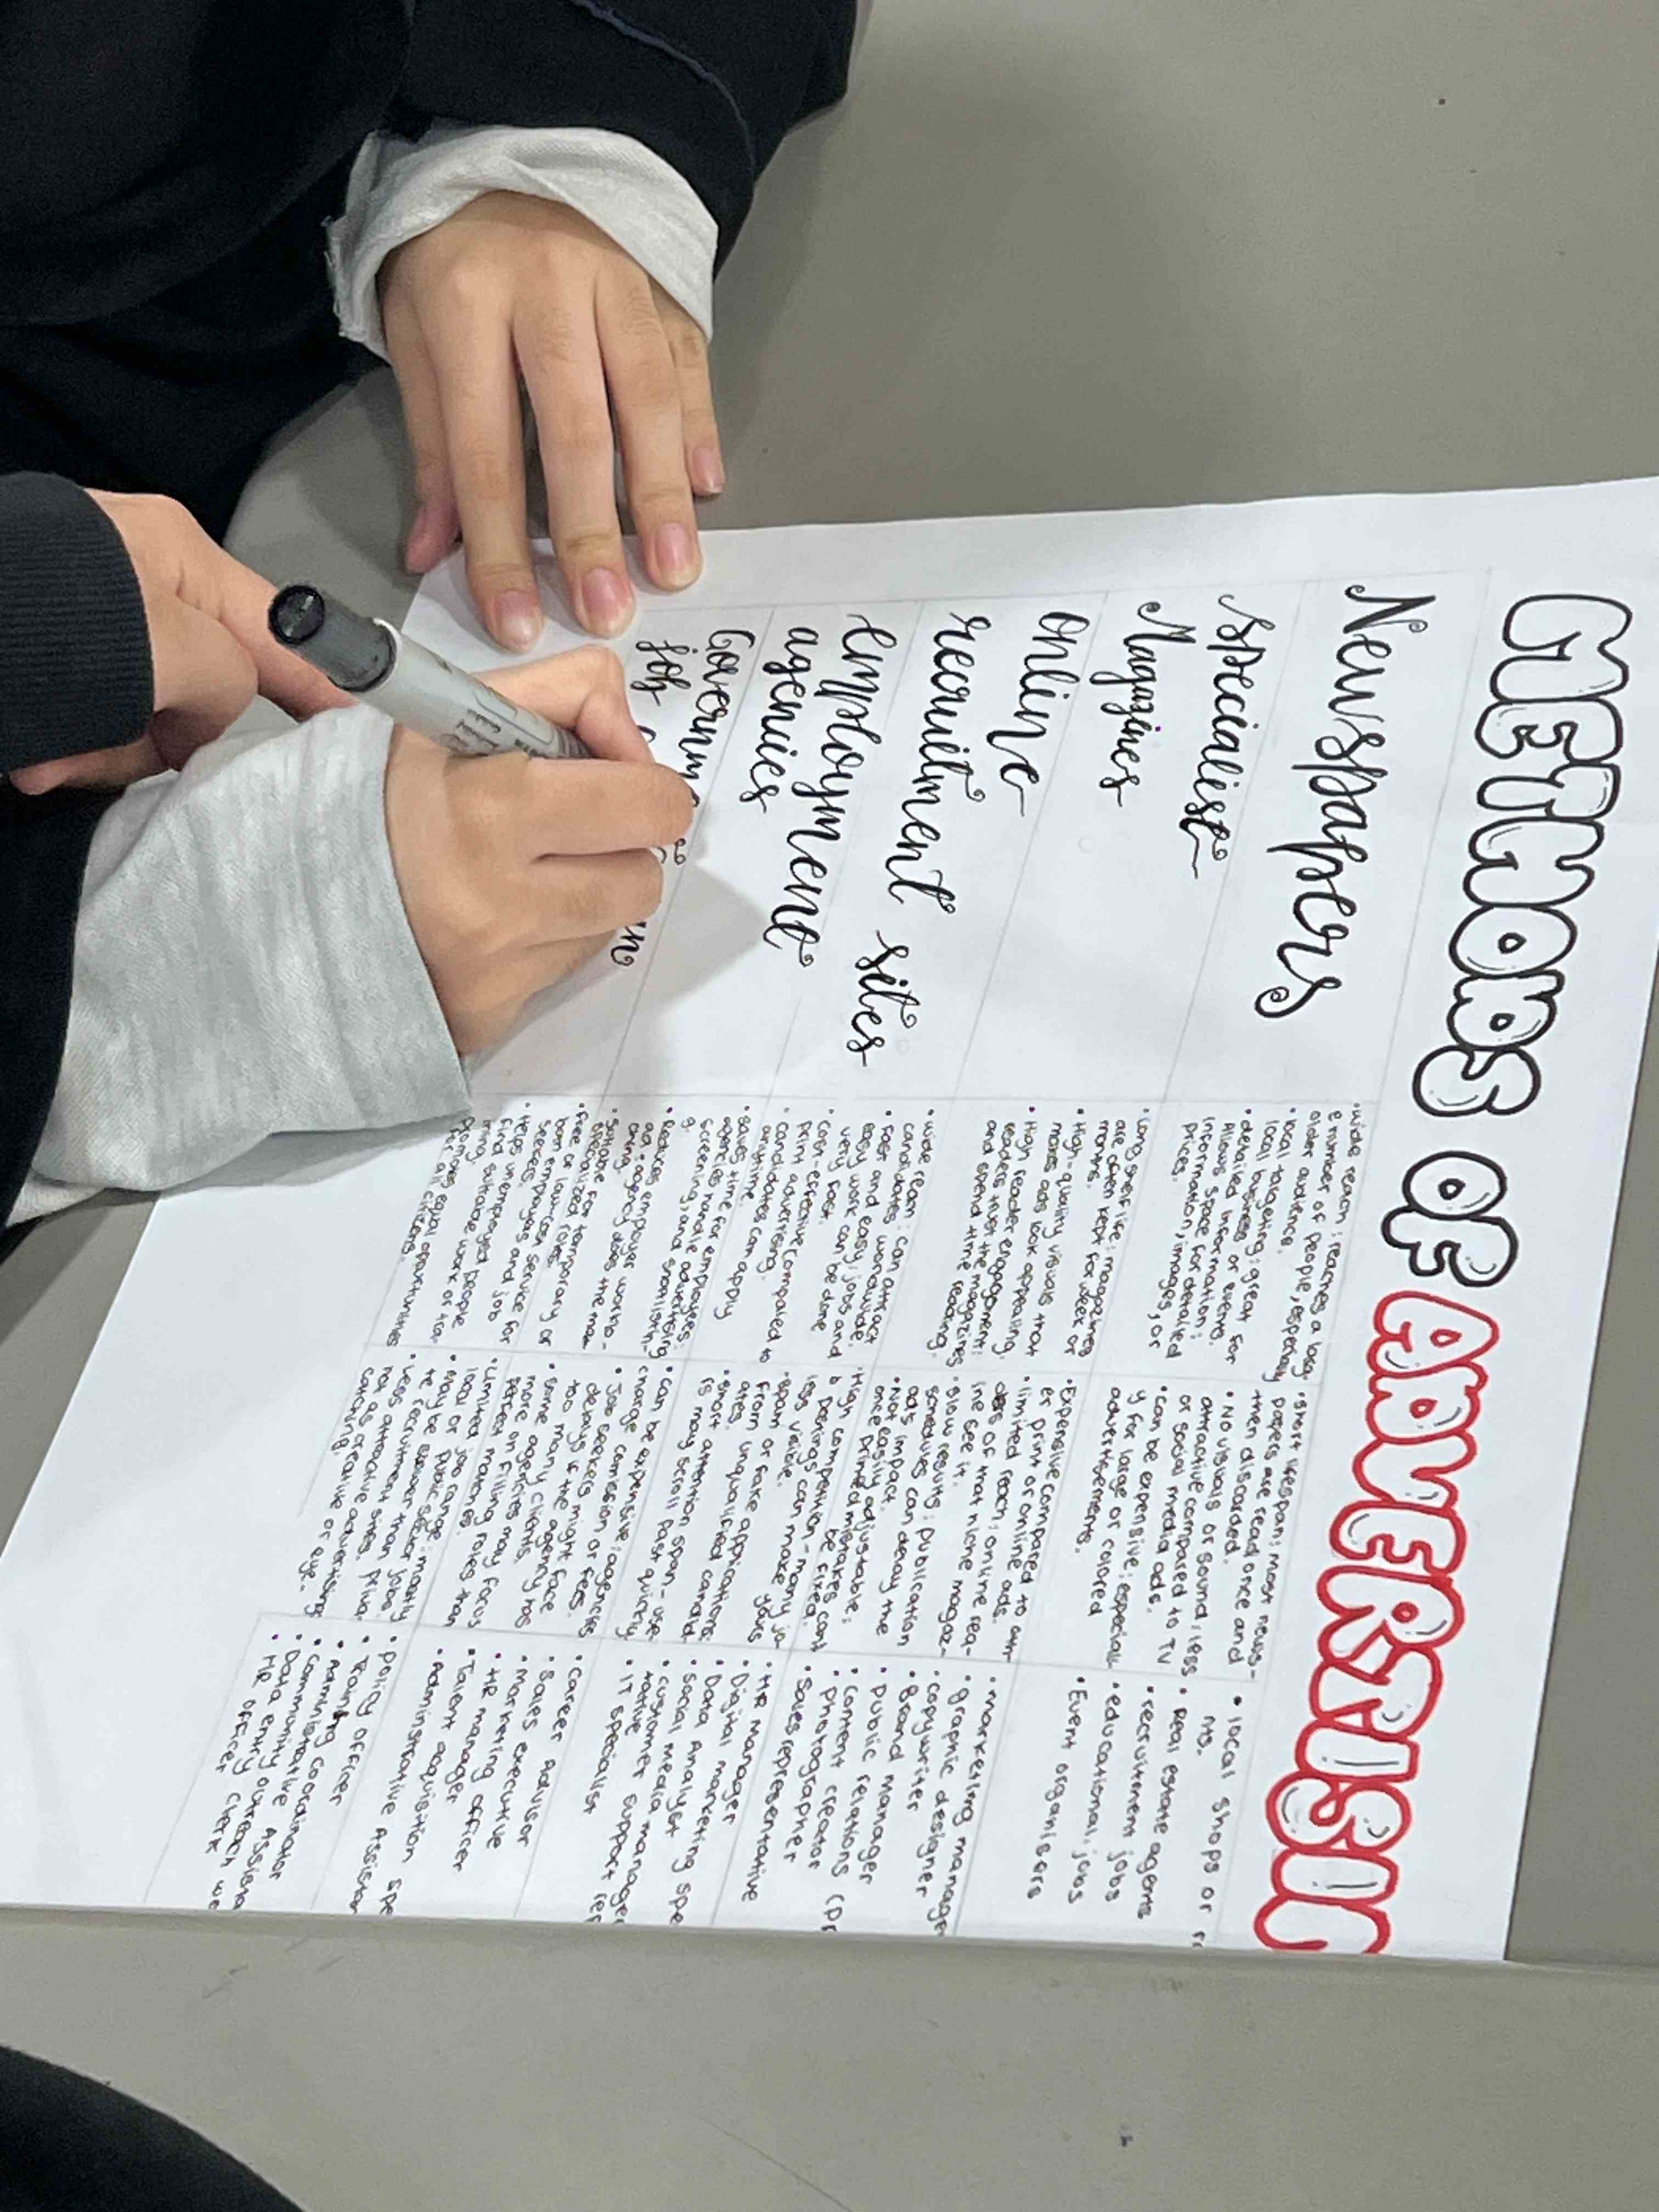 METHODS OF ADVERTISIN
Newspapers
specialist
Magazines
online
recruitment sites
employment
agencies
Governm
job
• wide reach: reaches a larg
e number of people, especially
older audience.
• local targeting: great for
local business or events.
• detailed information:
Allows space for detailed
information, images, or
prices.
• Long shelf life: magazines
are often kept for week or
months.
• High-quality visuals that
makes ads look appealing.
• High reader engagement:
readers trust the magazines
and spend time reading.
• wide reach: can attract
candidates worldwide.
• Fast and easy: jobs and
easy work can be done
very fast.
• cost-effective compared to
print advertising.
• candidates can apply
anytime
• saves time for employers:
agencies handle advertising
screening, and shortlistin-
g.
• Reduces employer worklo-
ad: agency does the mat-
ching.
• suitable for temporary or
specialized roles.
• Free or low-cost service for
both employers and job
seekers.
• Helps unemployed people
find suitable work or trai-
ning.
• Promotes equal opportunities
for all citizens.
• short lifespan: most news-
papers are read once and
then discarded.
• No visuals or sound: less
attractive compared to TV
or social media ads.
• can be expensive: especiall-
y for large or colored
advertisements.
• Expensive compared to oth-
er print or online ads.
• limited reach: only rea-
ders of that niche magaz-
ine see it.
• Slow results: publication
schedules can delay the
ads impact.
• Not easily adjustable:
once printed mistakes cant
be fixed.
• High competition - many jo-
b postings can make yours
less visible.
• spam or fake applications:
from unqualified candid-
ates.
• short attention span - use-
rs may scroll past quickly.
• can be expensive: agencies
charge comission or fees.
• Job seekers might face
delays if the agency has
too many clients.
• some agencies may focus
more on filling roles than
perfect matches.
• Limited job range: mostly
local or public sector jobs.
• May be slower than priva-
te recruitment sites.
• Less attractive advertising
not as creative or eye-
catching.
• local shops or
nts.
• Real estate agents
• recruitment jobs
• educational jobs
• Event organisers
• marketing manage
• graphic designer
• copywriter
• Brand manager
• Public relations (Pr
• content creator
• photographer
• sales representative
• HR Manager
• Digital marketing spe
• Data Analyst
• social media manage
• customer support rep
tative
• IT specialist
• career Advisor
• Sales executive
• Marketing officer
• HR manager
• Talent acquisition spe
• Administrative Assistan
• Policy officer
• Training coordinator
• Administrative Assista
• Community outreach wo
• Data entry clerk
• HR officer